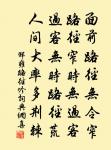 面前路徑無令窄
路徑窄時無過客
過客無時路徑荒
人間大率多荆棘
邵雍路徑吟詞典網書